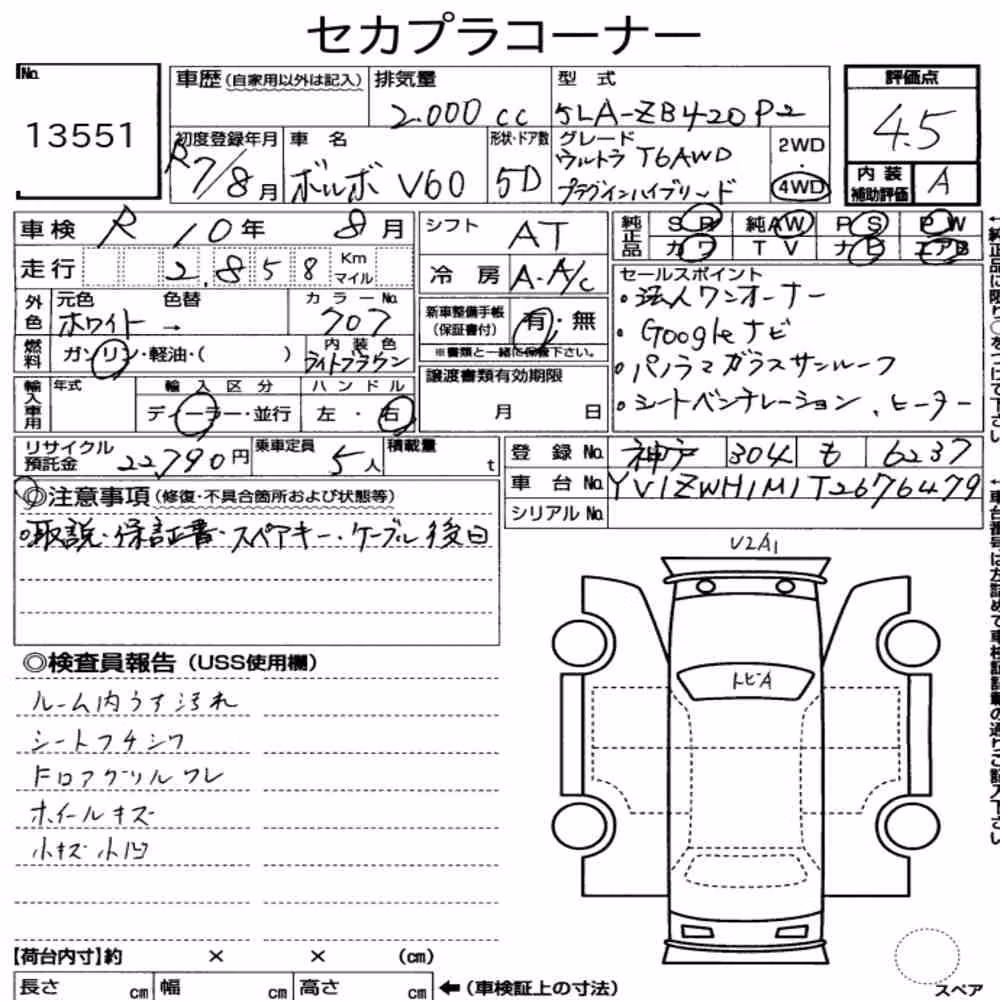 セカプラコーナー
No.
13551
車歴(自家用以外は記入)
排気量
2.000 cc
型式
5LA-ZB420P2
評価点
4.5
内装補助評価
A
初度登録年月
R7/8月
車名
ボルボ V60
形状・ドア数
5D
グレード
ウルトラ T6AWD
プラグインハイブリード
2WD
・
4WD
車検 R 10年 8月
シフト
AT
純正品
SR 純AW PS PW
カワ TV ナビ エアB
走行 2,858 Km マイル
冷房
A・A/C
セールスポイント
・法人ワンオーナー
・Googleナビ
・パノラマガラスサンルーフ
・シートベンチレーション、ヒーター
外色
元色
ホワイト →
色替
カラーNo.
707
新車整備手帳(保証書付)
有・無
※書類と一緒に保管下さい。
燃料
ガソリン・軽油・( )
内装色
ライトブラウン
輸入車用
年式
輸入区分
ディーラー・並行
ハンドル
左・右
譲渡書類有効期限
月 日
リサイクル預託金
22,790円
乗車定員
5人
積載量
t
登録No.
神戸 304 も 6237
車台No.
YV1ZWH1M1T2676479
シリアルNo.
◎注意事項(修復・不具合箇所および状態等)
○取説・保証書・スペアキー・ケーブル後日
U2A1
トビA
◎検査員報告(USS使用欄)
ルーム内うす汚れ
シートフチシワ
Fロアグリルワレ
ホイールキズ
小キズ小凹
【荷台内寸】約 × × (cm)
長さ cm 幅 cm 高さ cm ←(車検証上の寸法)
スペア
←純正品に限り○をつけて下さい
←車台番号は左詰めで車検証記載の通りご記入下さい